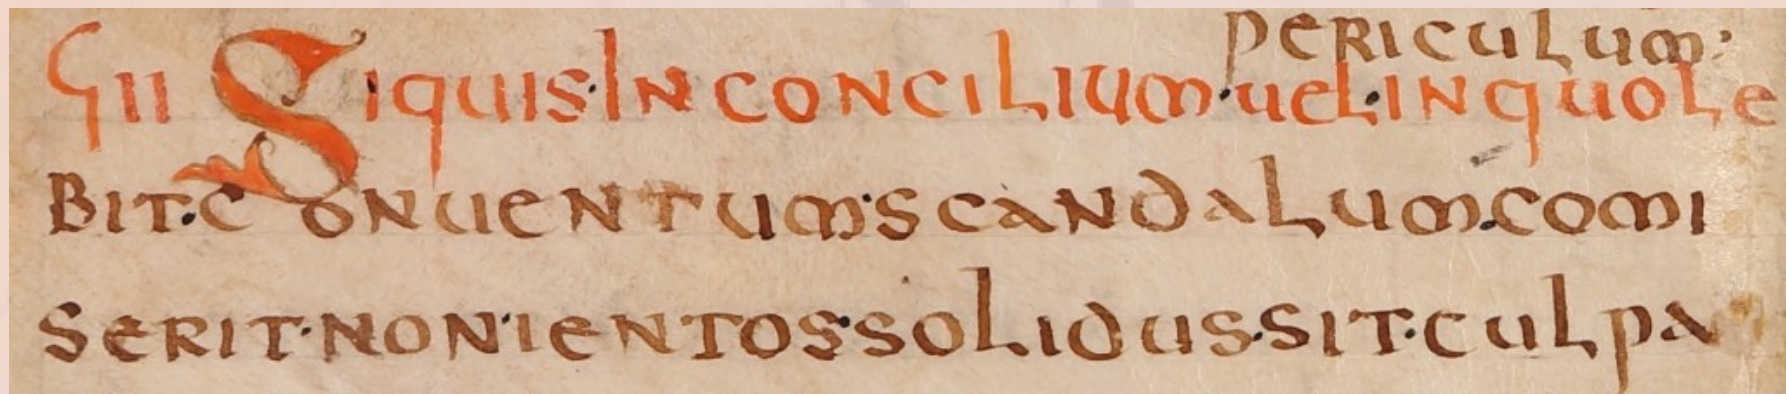 periculum:
ϛII Siquis·In concilium·uel·in quole
bit·conuentum·scandalum·comi
serit·nonientos·solidus·sit·culpa